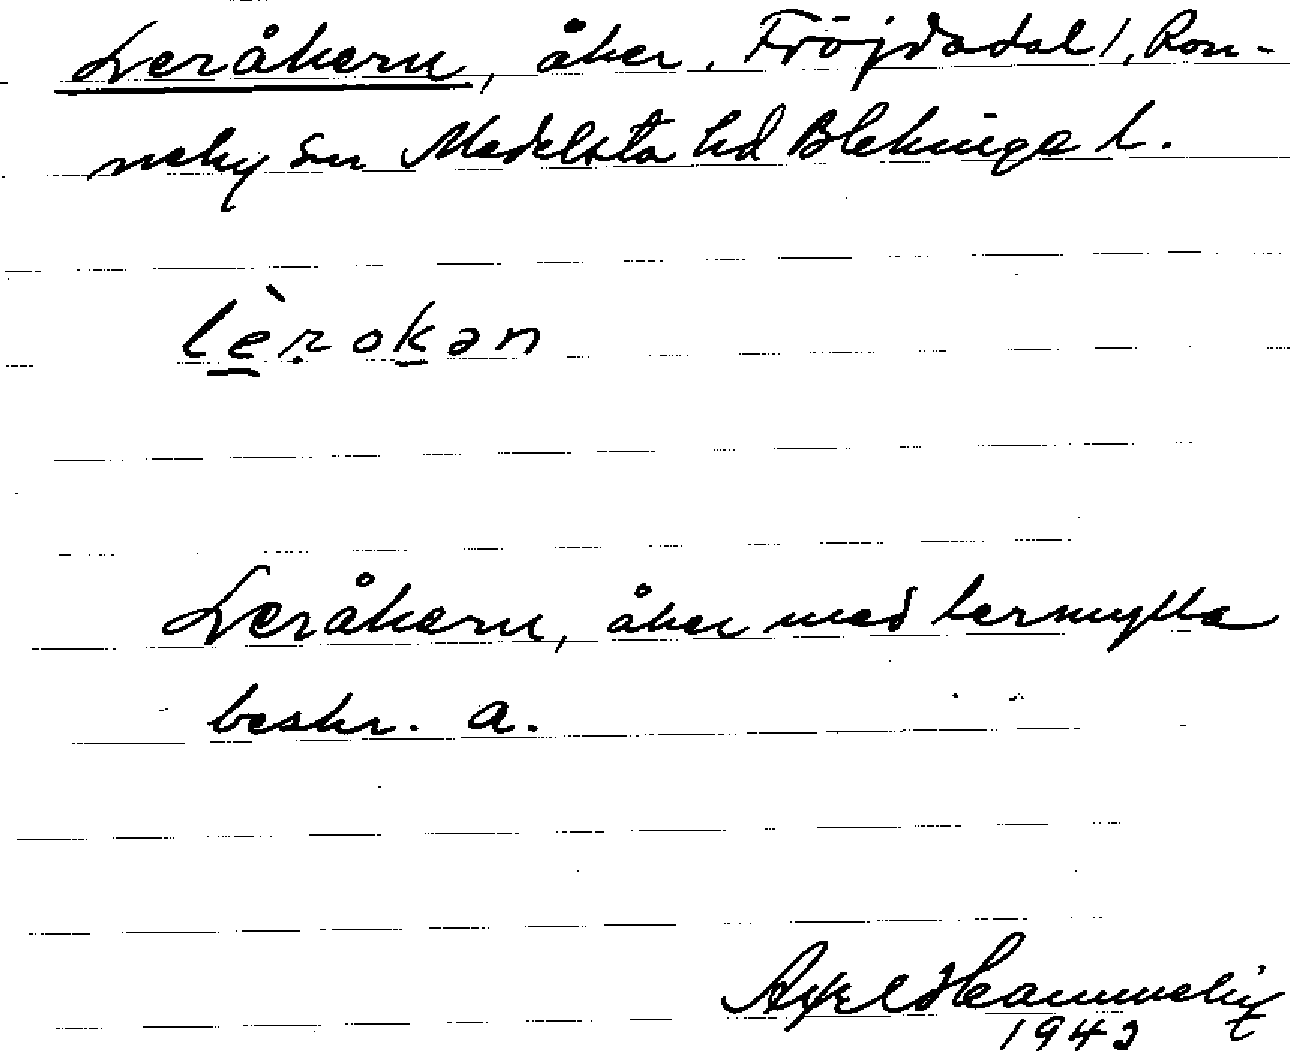 Leråkern, åker, Fröjdadal 1, Ron-
neby sn Medelsta hd Blekinge l.
lèrokən
Leråkern, åker med lermylla
beskr. a.
Axel
1942